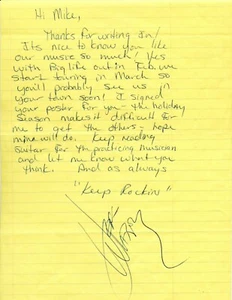 Hi Mike,
Thanks for writing In!
Its nice to know you like
our music so much! Yes
with Big life out in Feb, we
start touring in March so
you'll probably see us in
your town soon! I signed
your poster for you - the holiday
season makes it difficult for
me to get the others - hope
mine will do. Keep reading
Guitar for the practicing musician
and let me know what you
think. And as always
"Keep Rockin"